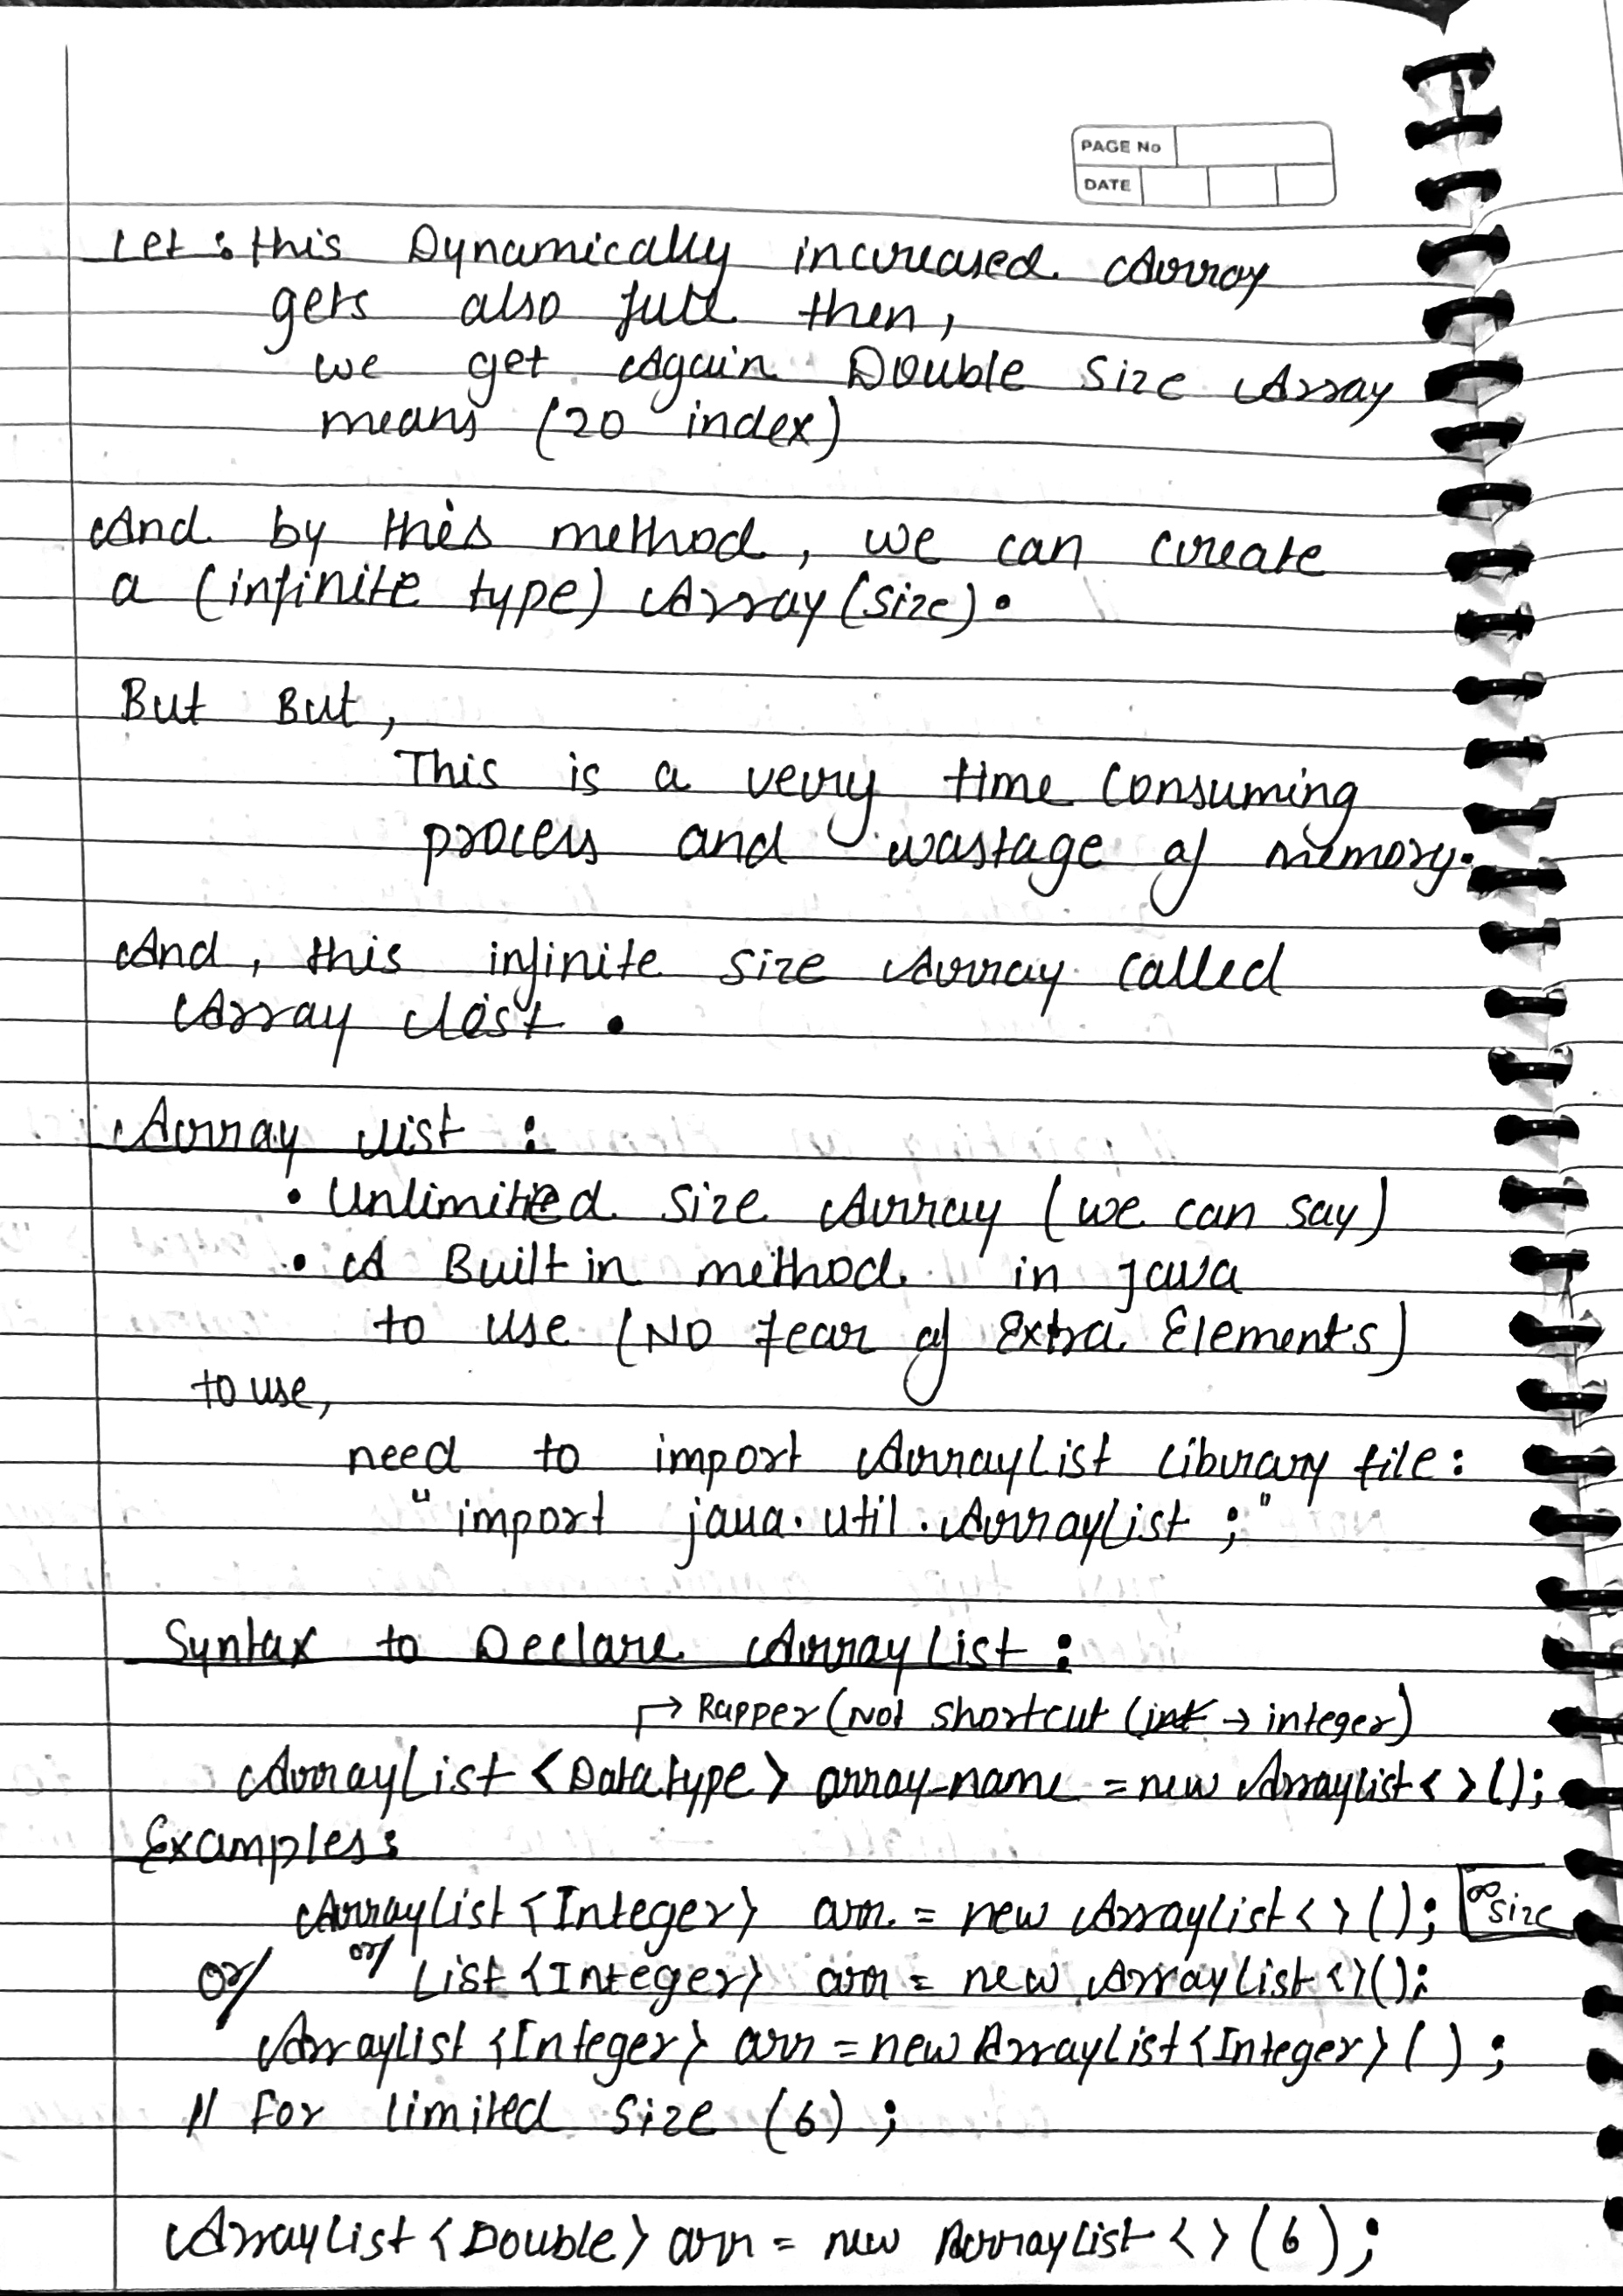 PAGE No
DATE
Let : this Dynamically increased Array
gets also full then,
we get Again Double Size Array
means (20 index)
And by this method, we can create
a (infinite type) Array (size).
But But,
This is a very time Consuming
process and wastage of memory.
And, this infinite size Array called
Array List.
Array List :
• Unlimitied size Array (we can say)
• A Built in method in java
to use (NO fear of Extra Elements)
to use,
need to import ArrayList Library file:
"import java.util.ArrayList ;"
Syntax to Declare ArrayList :
→ Rapper (Not shortcut (int → integer)
ArrayList <Data type> array-name = new Arraylist< >();
Examples:
ArrayList <Integer> arr = new Arraylist< >(); ∞ size
or/ or/ List <Integer> arr = new ArrayList<>();
Arraylist <Integer> arr = new ArrayList <Integer> ( ) ;
// For limited size (6) ;
ArrayList <Double> arr = new ArrayList < > (6) ;